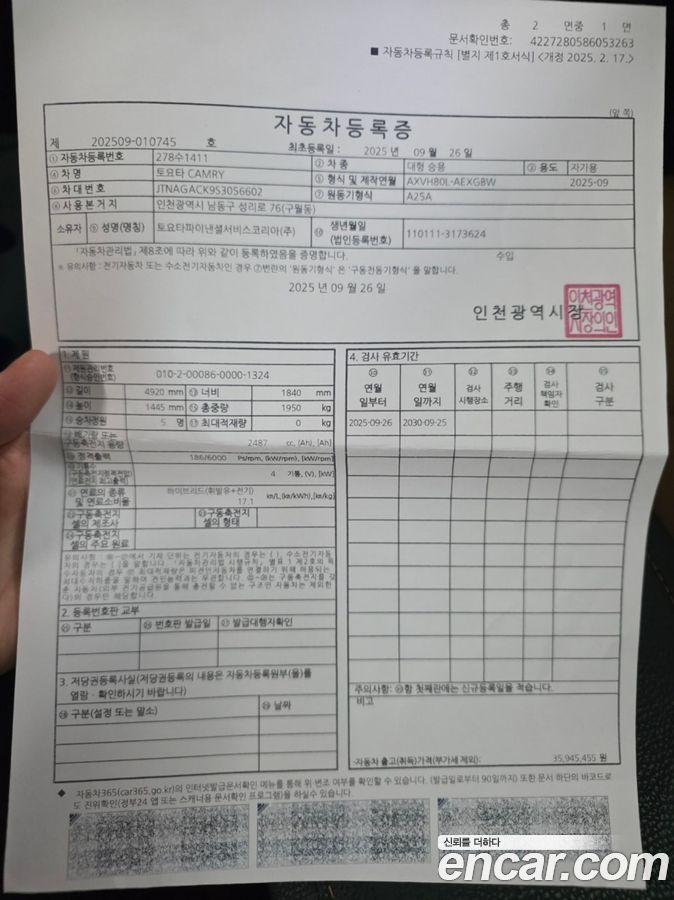 총 2 면중 1 면
문서확인번호: 4227280586053263
■ 자동차등록규칙 [별지 제1호서식] <개정 2025. 2. 17.>
(앞 쪽)
자동차등록증
제 202509-010745 호 최초등록일 : 2025 년 09 월 26 일
① 자동차등록번호 278수1411 ② 차 종 대형 승용 ③ 용도 자가용
④ 차 명 토요타 CAMRY ⑤ 형식 및 제작연월 AXVH80L-AEXGBW 2025-09
⑥ 차 대 번 호 JTNAGACK9S3056602 ⑦ 원동기형식 A25A
⑧ 사 용 본 거 지 인천광역시 남동구 성리로 76(구월동)
소유자 ⑨ 성명(명칭) 토요타파이낸셜서비스코리아(주) ⑩ 생년월일 (법인등록번호) 110111-3173624
「자동차관리법」제8조에 따라 위와 같이 등록하였음을 증명합니다. 수입
※ 유의사항 : 전기자동차 또는 수소전기자동차인 경우 ⑦번란의 '원동기형식' 은 '구동전동기형식' 을 말합니다.
2025 년 09 월 26 일
인천광역시장
인천광역
시장의인
1. 제원
제원관리번호 (형식승인번호) 010-2-00086-0000-1324
길이 4920 mm 너비 1840 mm
높이 1445 mm 총중량 1950 kg
승차정원 5 명 최대적재량 0 kg
배기량 또는 구동축전지 용량 2487 cc, [Ah], [Ah]
정격출력 186/6000 Ps/rpm, (kW/rpm), [kW/rpm]
기통수 4 기통, (V), [kW]
연료의 종류 및 연료소비율 하이브리드(휘발유+전기) 17.1 km/L,(km/kWh),[km/kg]
구동축전지 셀의 제조사 구동축전지 셀의 형태
구동축전지 셀의 주요 원료
2. 등록번호판 교부
구분 번호판 발급일 발급대행자확인
3. 저당권등록사실(저당권등록의 내용은 자동차등록원부(을)를
열람 · 확인하시기 바랍니다)
구분(설정 또는 말소) 날짜
4. 검사 유효기간
연월 일부터 연월 일까지 검사 시행장소 주행 거리 검사 책임자 확인 검사 구분
2025-09-26 2030-09-25
주의사항: 항 첫째란에는 신규등록일을 적습니다.
비고
자동차 출고(취득)가격(부가세 제외): 35,945,455 원
◆ 자동차365(car365.go.kr)의 인터넷발급문서확인 메뉴를 통해 위·변조 여부를 확인할 수 있습니다. (발급일로부터 90일까지) 또한 문서 하단의 바코드로
도 진위확인(정부24 앱 또는 스캐너용 문서확인 프로그램)을 하실수 있습니다.
신뢰를 더하다
encar.com